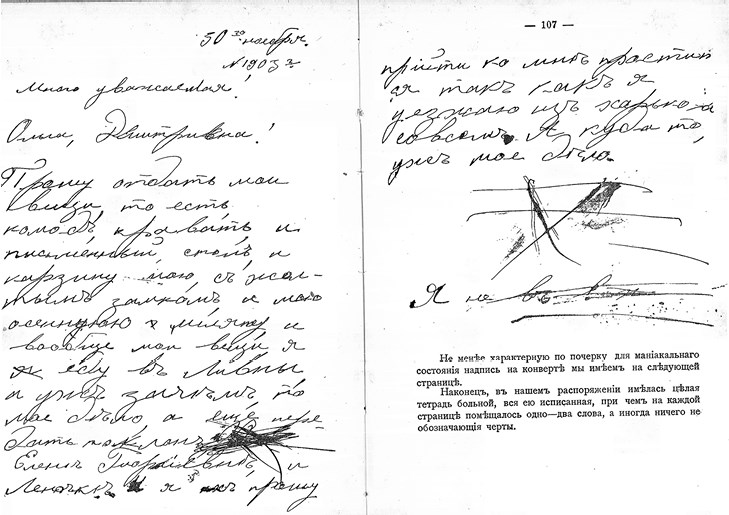 50 го ноебря.
N 1903 г
Много уважаемая!
Ольга, Дмитривна!
Прошу отдать мои
вещи, то есть
комодъ, кравать, и
письменный, столъ, и
карзину мою, съ жол-
тымъ замкомъ, и мою
осеннуюю и
вообще мои вещи я
ѣду въ Ливны
а ужъ зачемъ то
мое дѣло, а ещё пере-
дать поклонъ
Елене и
Леночке и я ихъ прошу
— 107 —
прійти ко мнѣ простит
ся такъ какъ я
уезжаю изъ харькова
совсемъ. А куда то,
ужъ мое дѣло.
Я не въ
Не менѣе характерную по почерку для маніакальнаго
состоянія надпись на конвертѣ мы имѣемъ на слѣдующей
страницѣ.
Наконецъ, въ нашемъ распоряженіи имѣлась цѣлая
тетрадь больной, вся ею исписанная, при чемъ на каждой
страницѣ помѣщалось одно—два слова, а иногда ничего не
обозначающія черты.